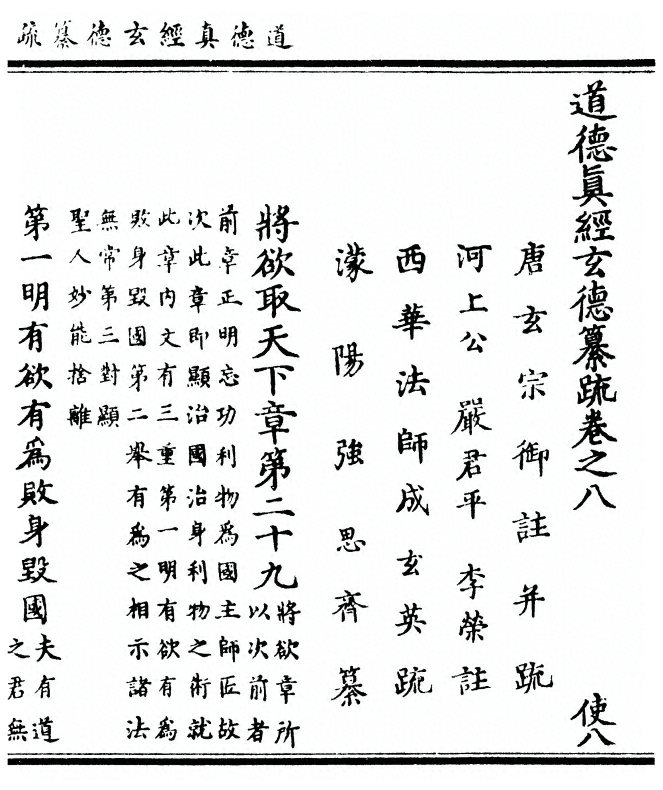 道德真經玄德纂疏
道德眞經玄德纂䟽卷之八 使八
唐玄宗御註并䟽
河上公 嚴君平 李榮註
西華法師成玄英䟽
濛陽強思齊纂
將欲取天下章第二十九
將欲章所
以次前者
前章正明忘功利物爲國主師匠故
次此章即顯治國治身利物之術就
此章内文有三重第一明有欲有爲
敗身毀國第二舉有爲之相示諸法
無常第三對顯
聖人妙能捨離
第一明有欲有爲敗身毀國
夫有道
之君無